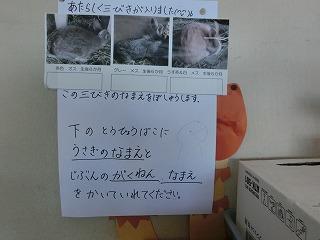 あたらしく三びきが入りました(^○^)
茶色 メス 生後6か月
グレー メス 生後6か月
うす茶&白 メス 生後6か月
この三びきのなまえをぼしゅうします。
下の とうひょうばこに
うさぎのなまえと
じぶんの がくねん、なまえ
を かいていれてください。